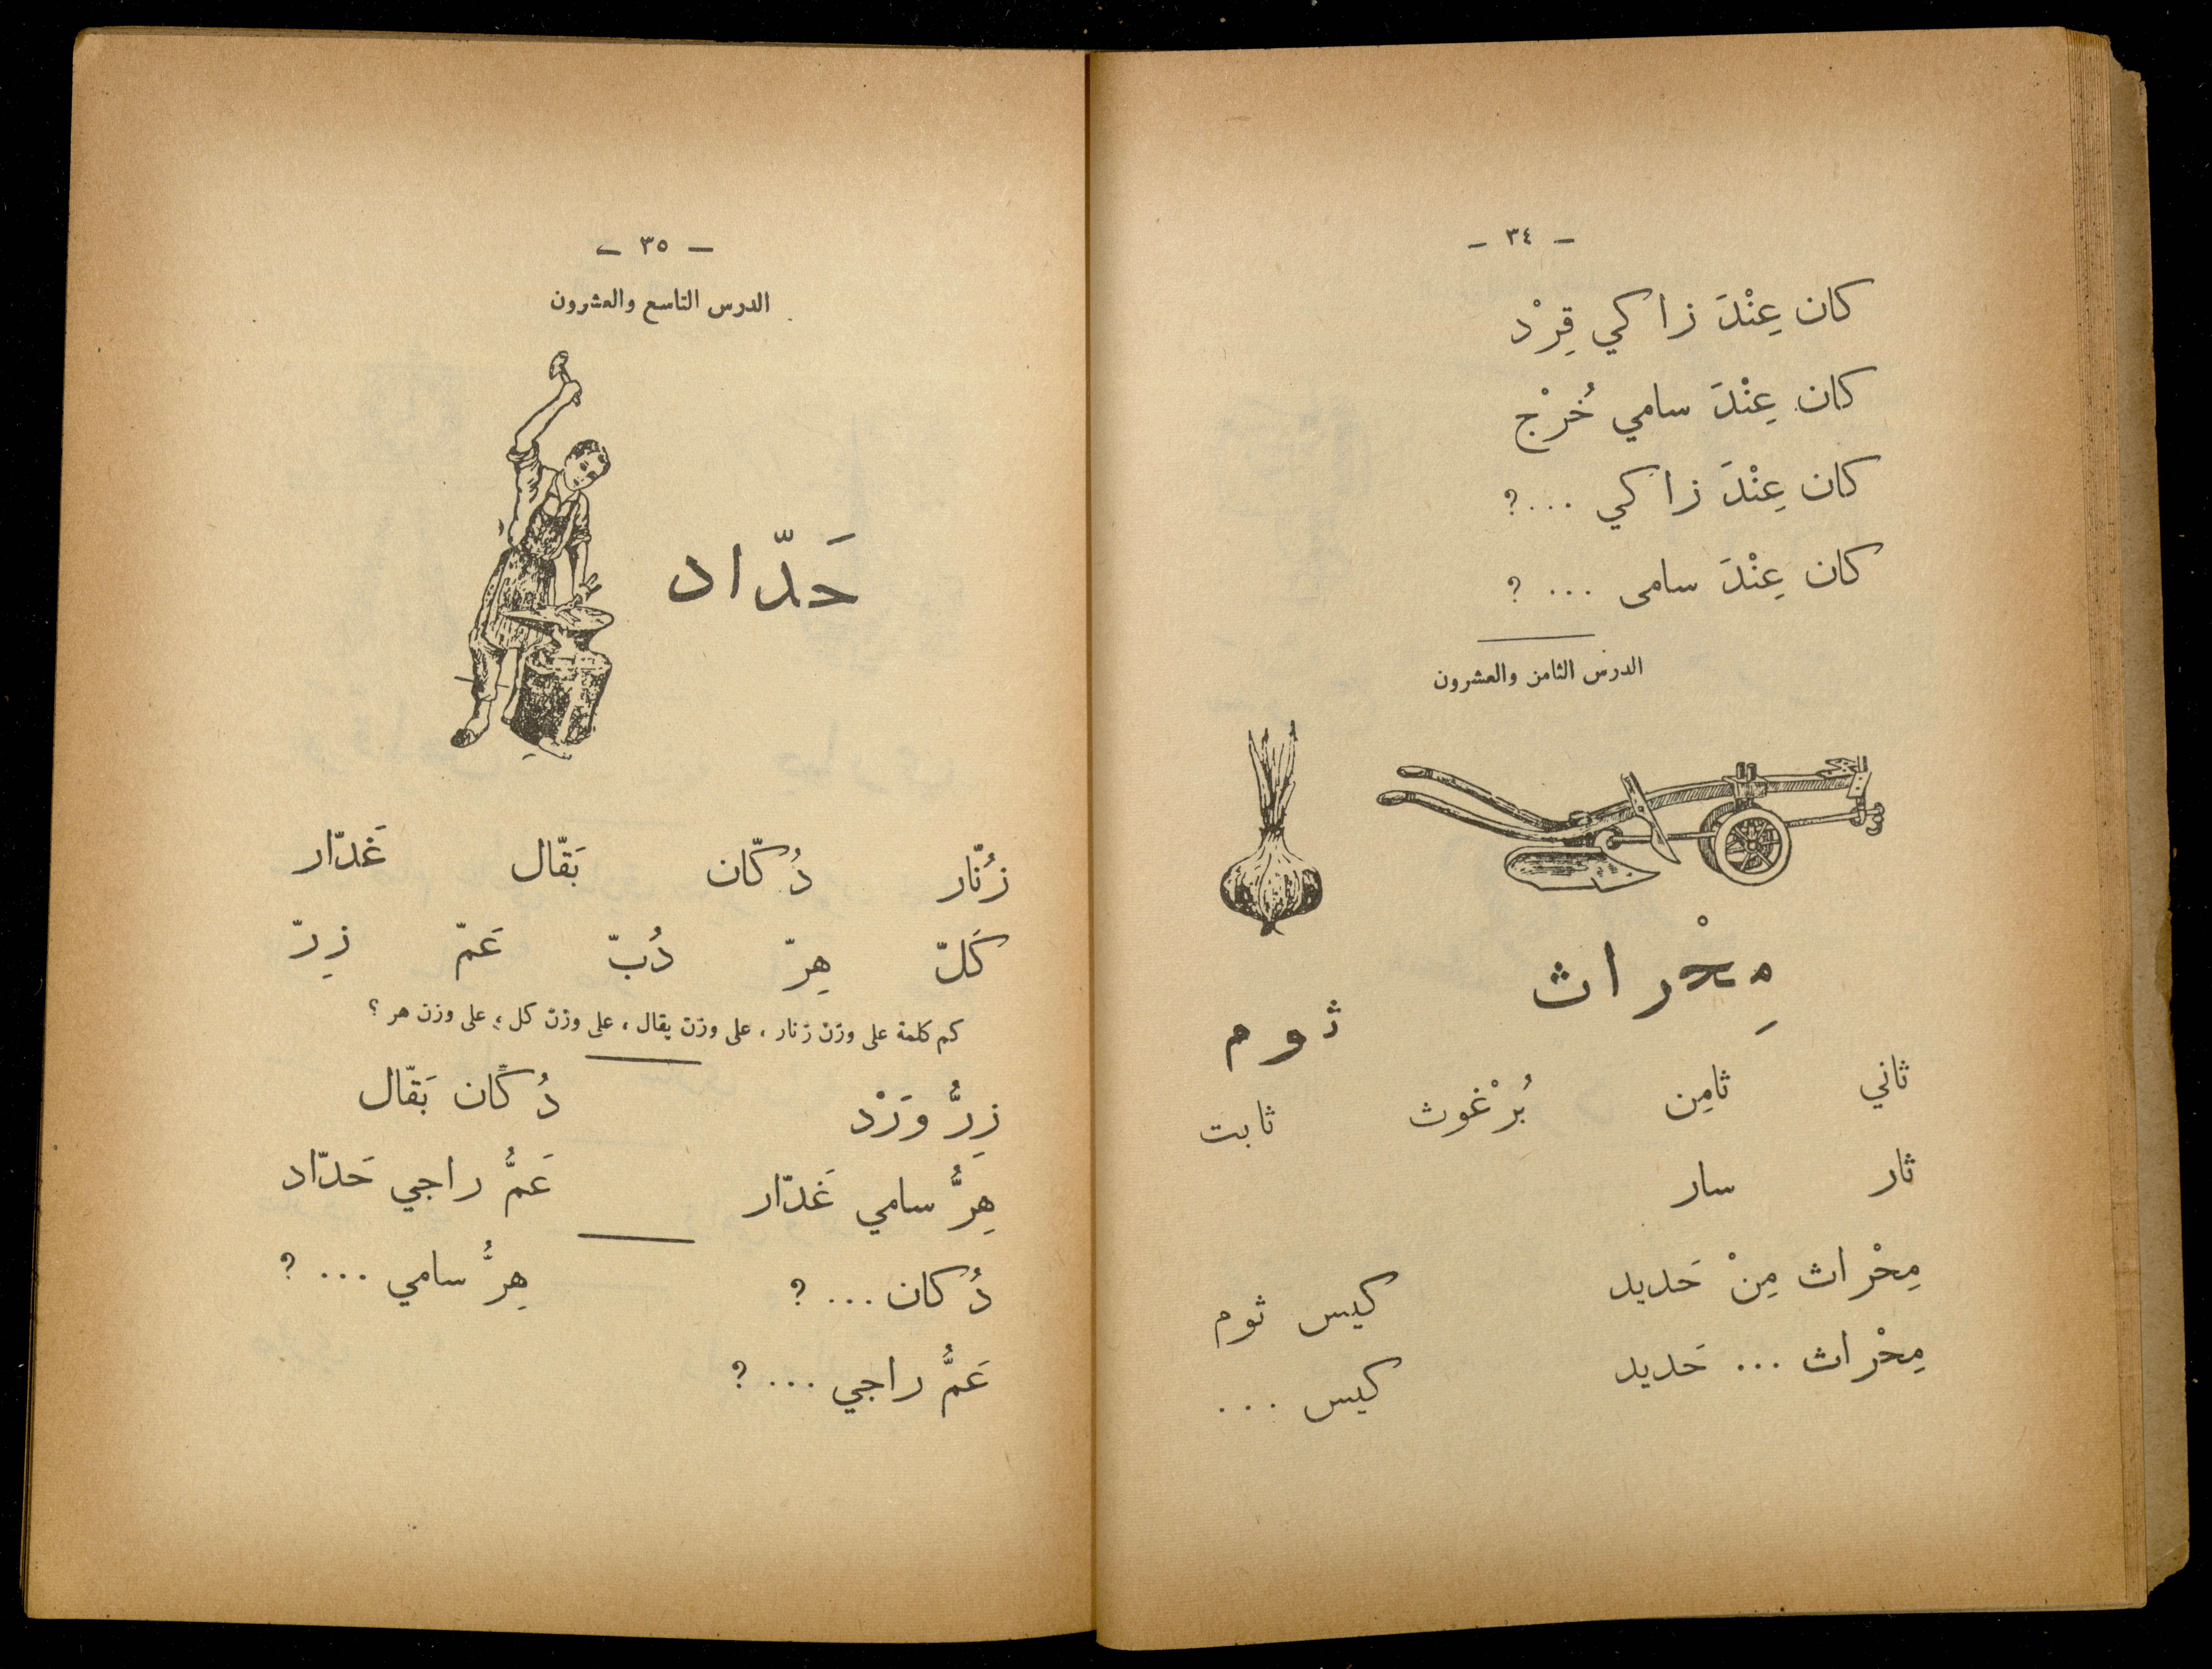 — ٣٤ —
كان عِنْدَ زاكي قِرْد
كان عِنْدَ سامي خُرْج
كان عِنْدَ زاكي ...؟
كان عِنْدَ سامى ... ؟
الدرس الثامن والعشرون
مِحْراث ثوم
ثاني ثامِن بُرْغوث ثابت
ثار سار
مِحْراث مِنْ حَديد كيس ثوم
مِحْراث ... حَديد كيس ...
— ٣٥ —
الدرس التاسع والعشرون
حَدّاد
زُنّار دُكّان بَقّال غَدّار
كَلّ هِرّ دُبّ عَمّ زِرّ
كم كلمة على وزن زنار ، على وزن بقال ، على وزن كل ، على وزن هر ؟
زِرُّ وَرْد دُكّان بَقّال
هِرُّ سامي غَدّار عَمُّ راجي حَدّاد
دُكان ... ؟ هِرُّ سامي ... ؟
عَمُّ راجي ... ؟